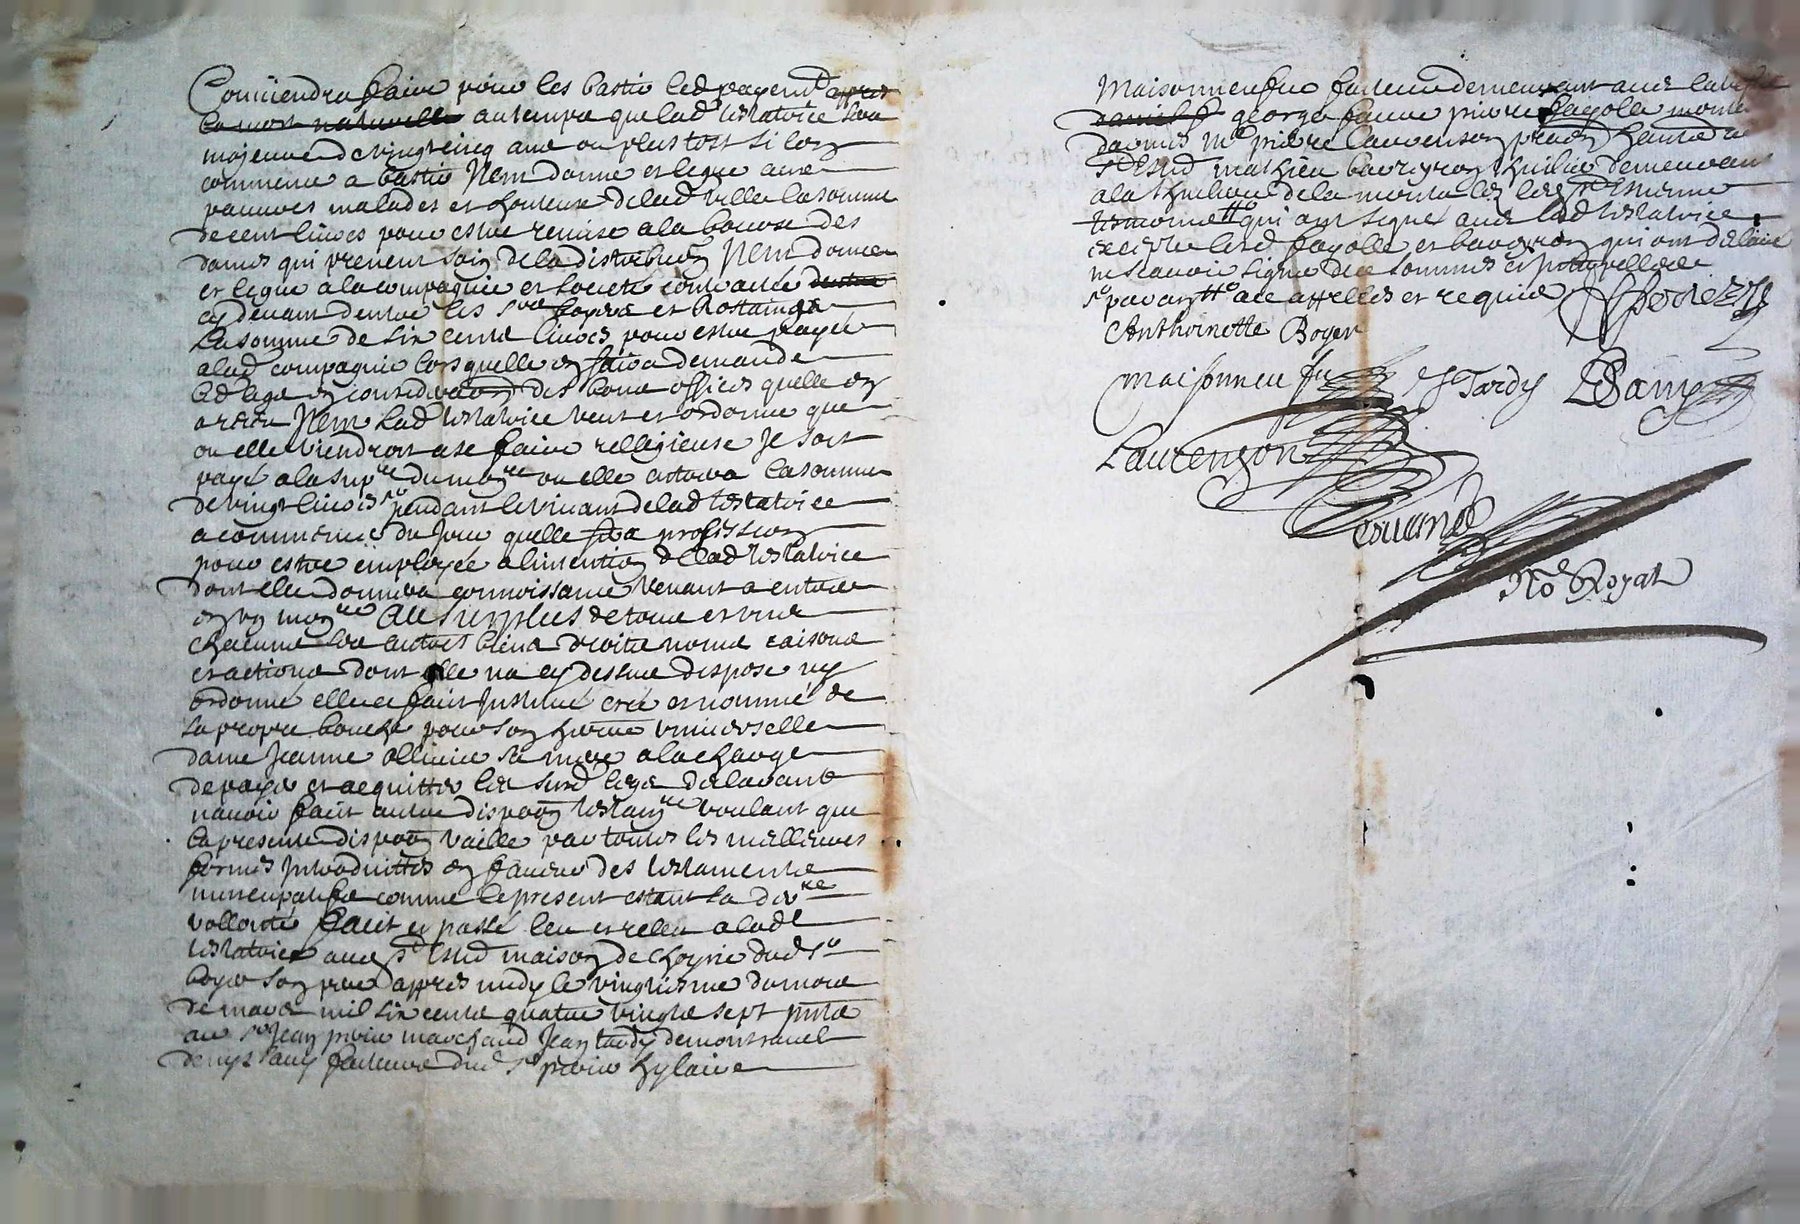 Conviendra faire pour les bastir led payemt appres
la mort naturelle au temps que lad testatrice sera
majeure de vingt cinq ans ou plus tost si lon
commence a bastir Item donne et legue aux
pauvres malades et honteux de lad ville la somme
de cent livres pour estre remise a la bource des
dames qui prenent soin de la distribuon Item donne
et legue a la compagnie et societé contractée
cy devant entre les srs boyer et Rostaings
la somme de six cents livres pour estre payée
a lad compagnie lors quelle en faira demande
led legs en consideraon des bons offices quelle en
a receu Item lad testatrice veut et ordonne que
ou elle viendroit a se faire relligieuse Je soit
payé a la supre du monre ou elle entrera la somme
de vingt livres pendant le vivant de lad testatrice
a commencer du jour quelle fera profession
pour estre employée a lintention de lad testatrice
dont elle donnera connoissance venant a entrer
en un monre Au surplus de tous et uns
chacuns ses autres biens droits noms raisons
et actions dont elle na cy dessus disposé ny
ordonné elle a fait Institué creé et nommé de
sa propre bouche pour son heritiere universelle
dame Jeanne ollivier sa mere a la charge
de payer et acquitter les susd legs declarant
navoir fait autre dispoon testamre voulant que
la presente dispoon vaille par toutes les meilleures
formes Introduittes en faveur des testaments
nuncupatifs comme le present estant sa dere
vollonté fait et passé leu et releu a lad
testatrice aud st Estne maison de hoyrie dud sr
boyer son pere appres midy le vingtiesme du mois
de mars mil six cents quatre vingts sept pnts
au sr Jean marchand Jean tardy de montravel
denys facteurs dud sr hylaire
Maisonneufve facteur demeurant avec
george faure pierre fayolle
Me pierre laurenson
st Estne mathieu baveyron thuilier demeurant
a la thuiliere de la monta les led st Estienne
tesmoins qui ont signé avec lad testatrice
excepté lesd fayolle et baveyron qui ont declairé
ne scavoir signer de ce sommés et
Anthoinette Boyer
maisonneufve J Tardy
Laurenson
No Royal